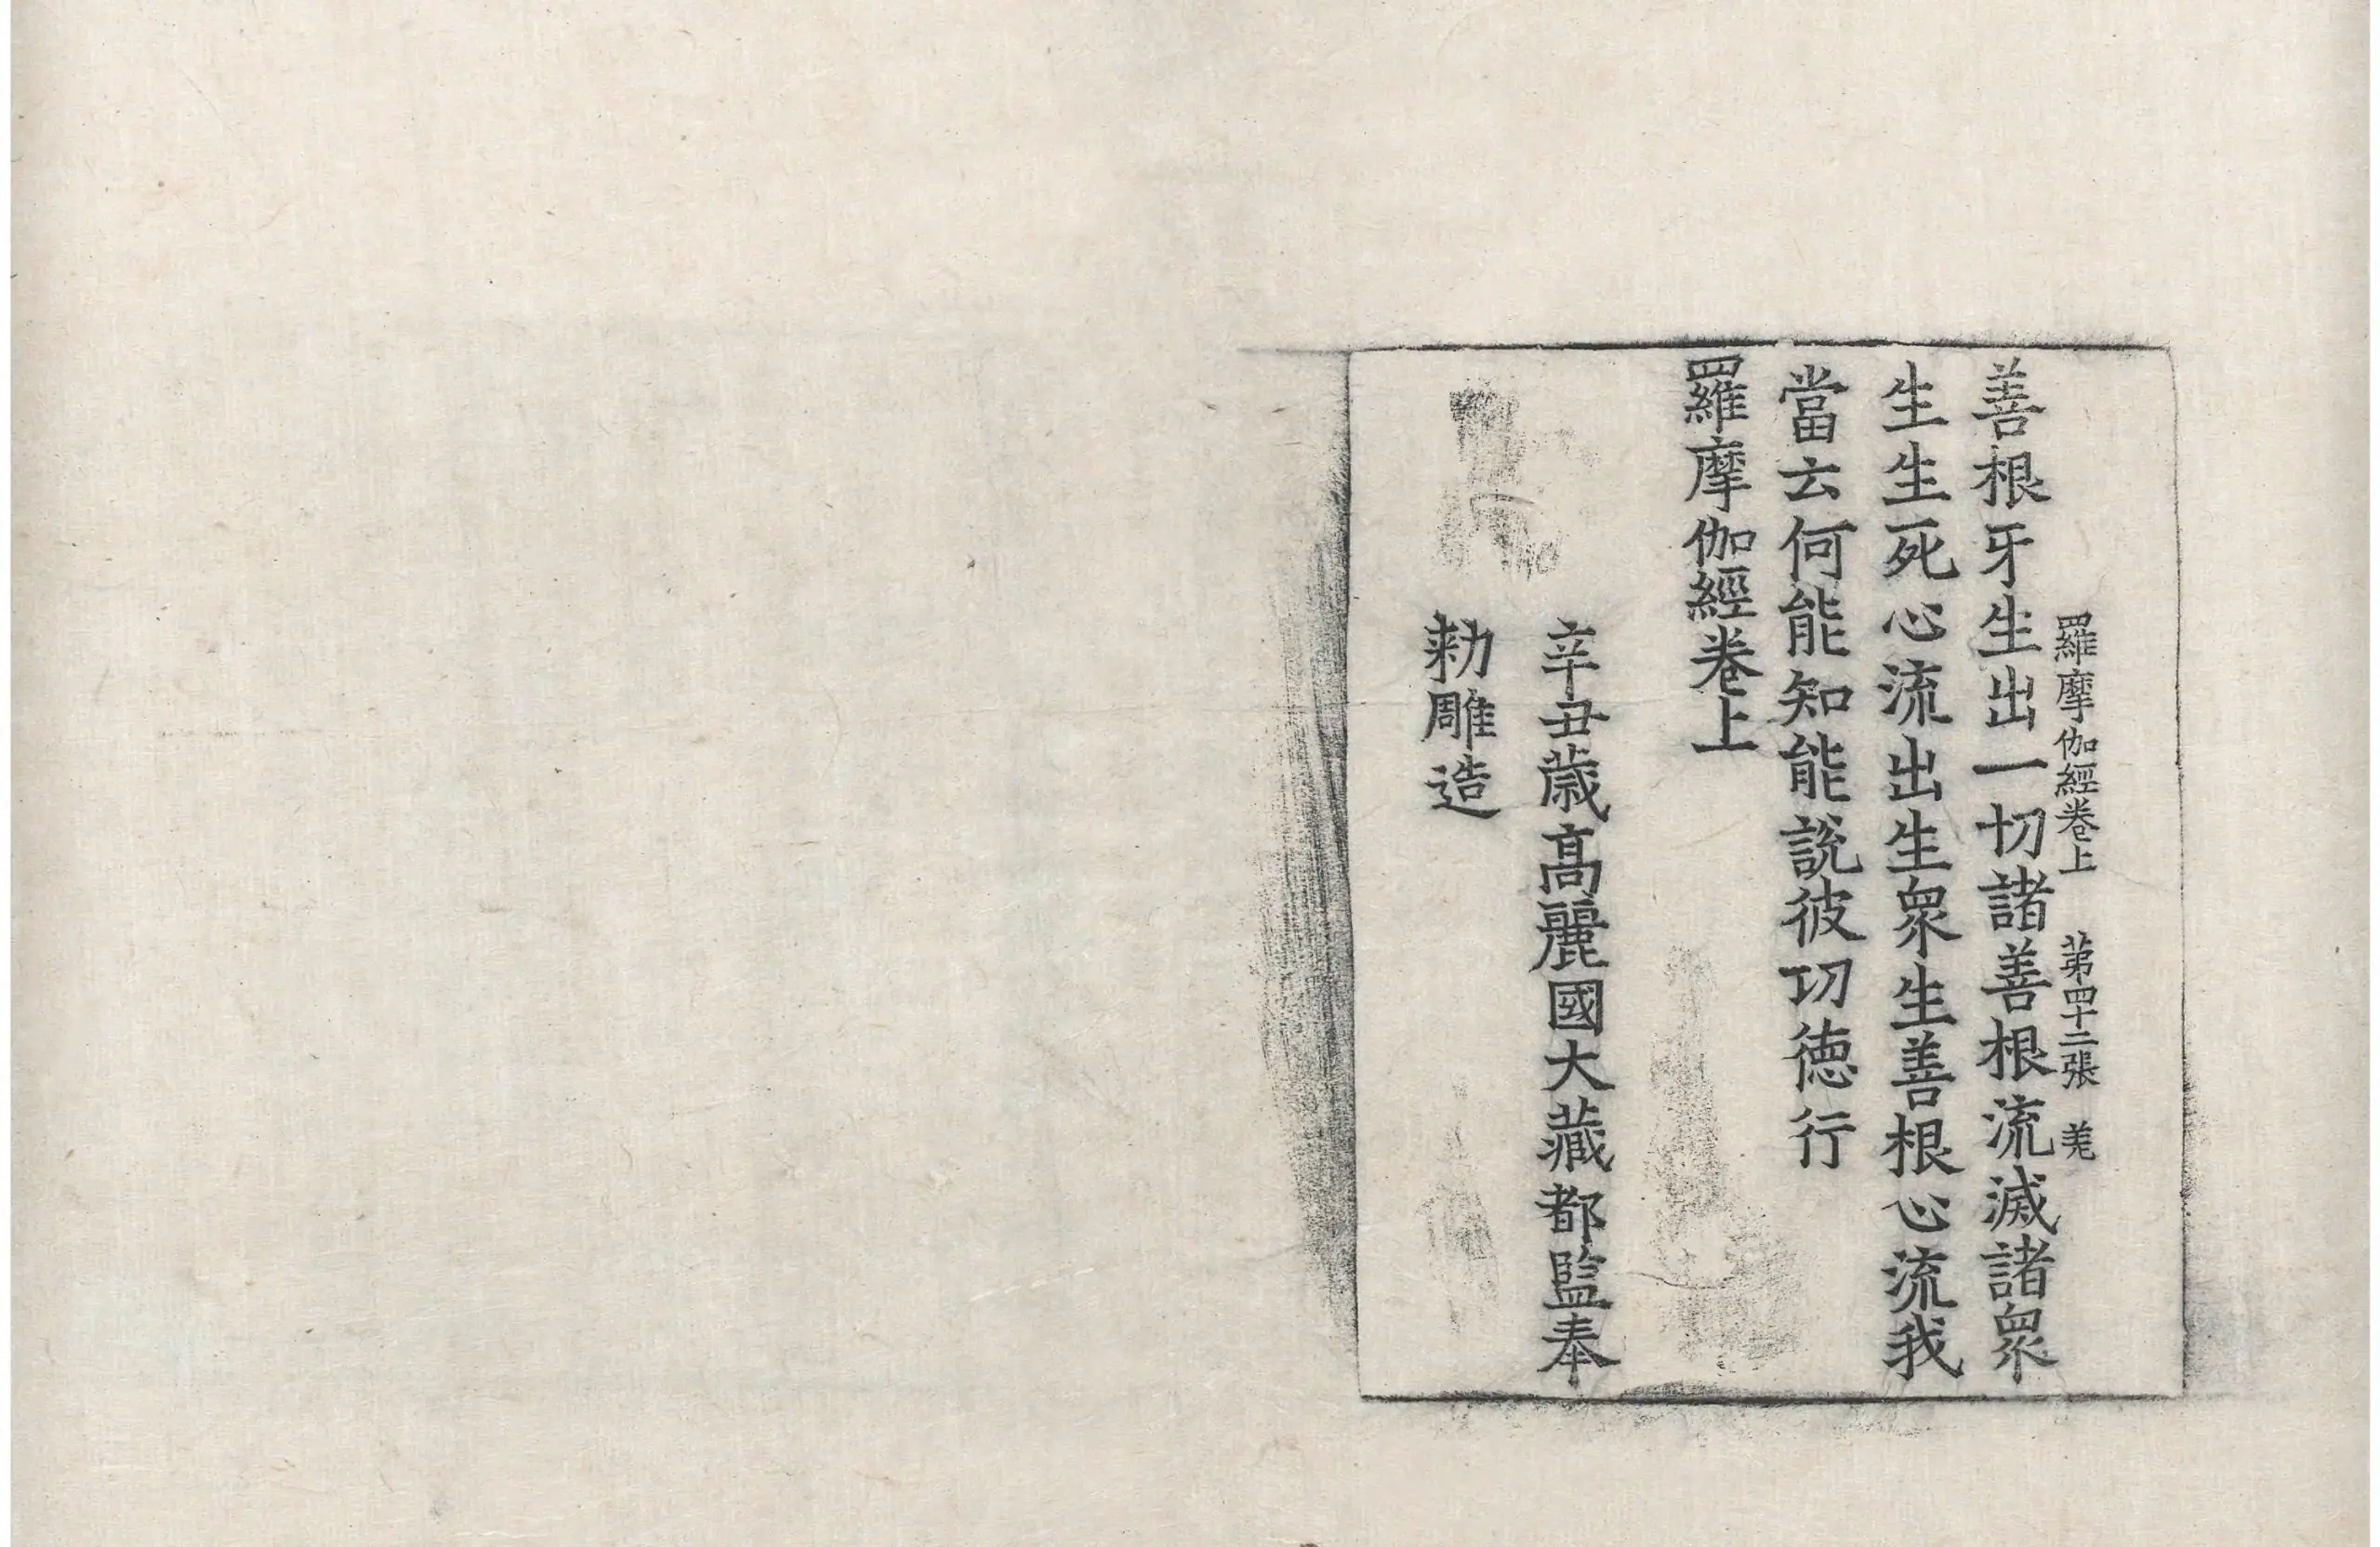 羅摩伽經卷上 苐四十二張 羌
善根牙生出一切諸善根流滅諸衆
生生死心流出生衆生善根心流我
當云何能知能說彼功德行
羅摩伽經卷上
辛丑歲高麗國大藏都監奉
勑雕造